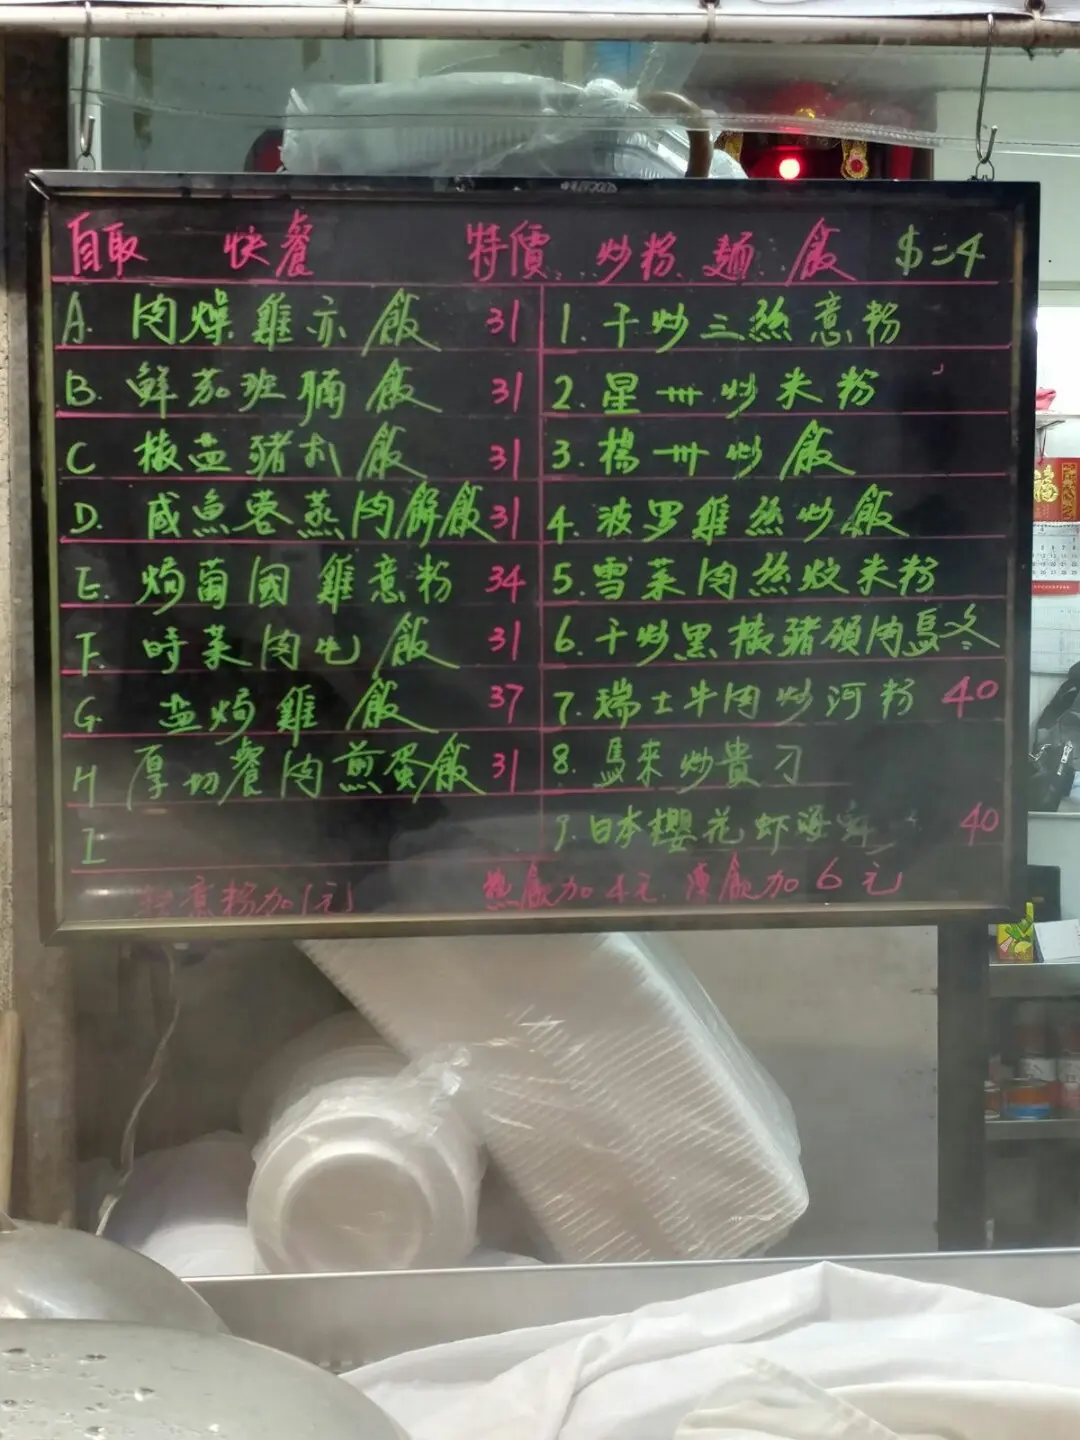 自取 快餐 特價 炒粉 麵 飯 $二4
A. 肉燥雞亦飯 31
B. 鮮茄班腩飯 31
C 椒盐豬扒飯 31
D. 咸魚蓉蒸肉餅飯 31
E. 焗葡國雞意粉 34
F. 時菜肉乸飯 31
G. 盐焗雞飯 37
H 厚切餐肉煎蛋飯 31
I
1. 干炒三絲意粉
2. 星卅炒米粉
3. 楊卅炒飯
4. 波罗雞絲炒飯
5. 雪菜肉絲炆米粉
6. 干炒黑椒豬頸肉烏冬
7. 瑞士牛肉炒河粉 40
8. 馬來炒貴刁
9. 日本櫻花虾海鮮 40
意粉加1元
熱飲加4元 凍飲加6元